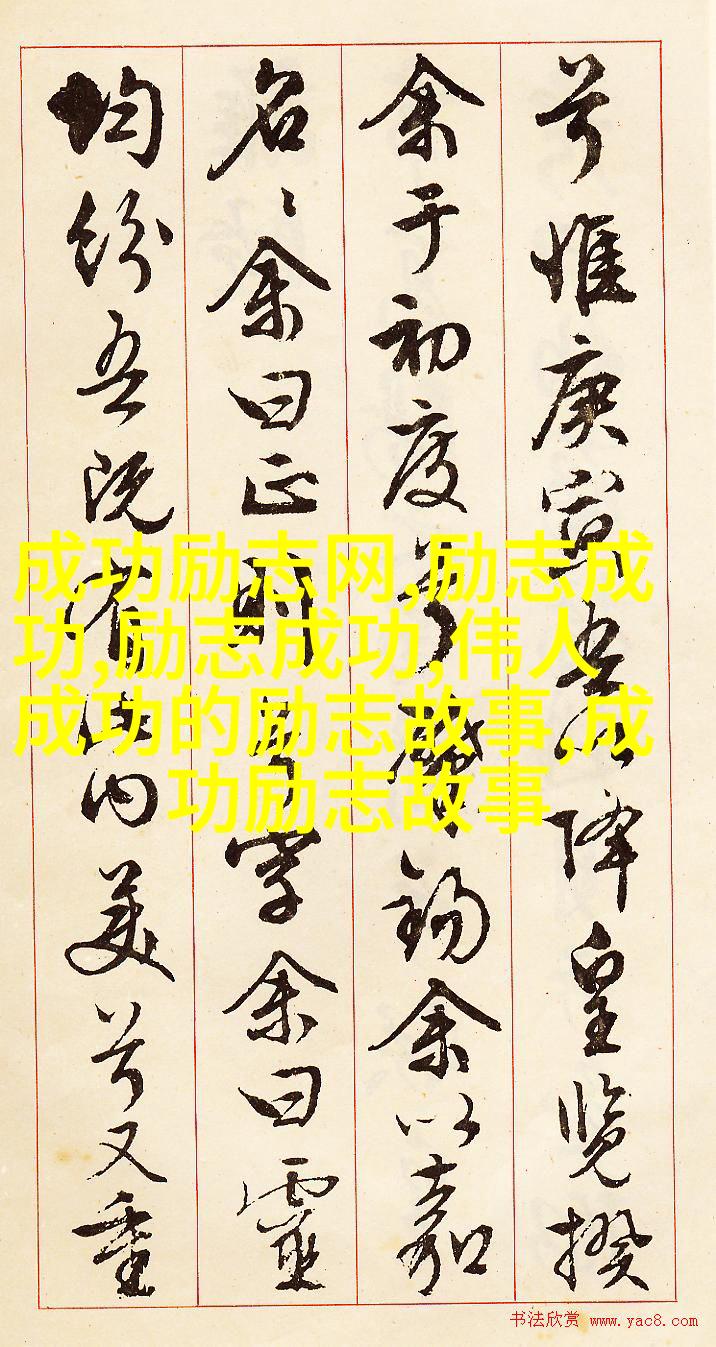 兮惟庚寅吾以降皇覽揆
余于初度兮肇錫余以嘉
名〻余曰正則兮字余曰靈
均紛吾既有此内美兮又重
成功励志网,励志成
功,励志成功,伟人
成功的励志故事,成
功励志故事
书法欣赏 www.yac8.com